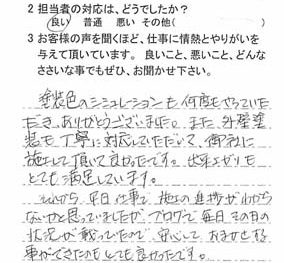 2 担当者の対応は、どうでしたか？
良い 普通 悪い その他(　　　　)
3 お客様の声を聞くほど、仕事に情熱とやりがいを
与えて頂いています。 良いこと、悪いこと、どんな
ささいな事でもぜひ、お聞かせ下さい。
塗装色のシミュレーションも何度もやっていた
だき、ありがとうございました。また 外壁塗
装も丁寧に対応していただいて、御社に
施工して頂いて良かったです。出来上がりも
とても満足しています。
平日 仕事で、施工の進捗がわから
ないかと思っていましたが、ブログで毎日その日の
状況が載っていたので、安心して、おまかせする
事ができたのもとても良かったです。